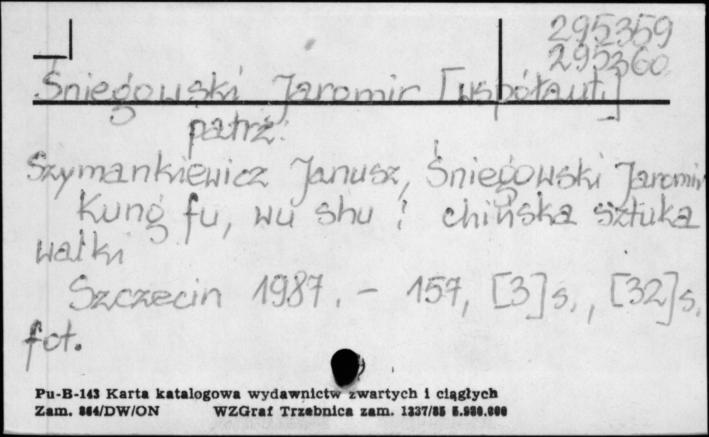 295359
295360
Śniegowski Jaromir [współaut.]
patrz:
Szymankiewicz Janusz, Śniegowski Jaromir
Kung fu, wu shu : chińska sztuka
walki
Szczecin 1987. - 157, [3] s., [32] s.
fot.
Pu-B-143 Karta katalogowa wydawnictw zwartych i ciągłych
Zam. 864/DW/ON WZGraf Trzebnica zam. 1337/85 5.980.000